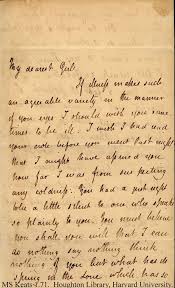 My dearest Girl,
If illness makes such
an agreeable variety in the manner
of your eyes I should wish you some
times to be ill. I wish I had read
your note before you went last night
that I might have assured you
how far I was from suspecting
any coldness. You had a just right
to be a little silent to one who speaks
so plainly to you. You must believe
you shall, you will that I can
do nothing say nothing think
nothing of you but what has its
spring in the Love which has so
MS Keats 1.71. Houghton Library, Harvard University.